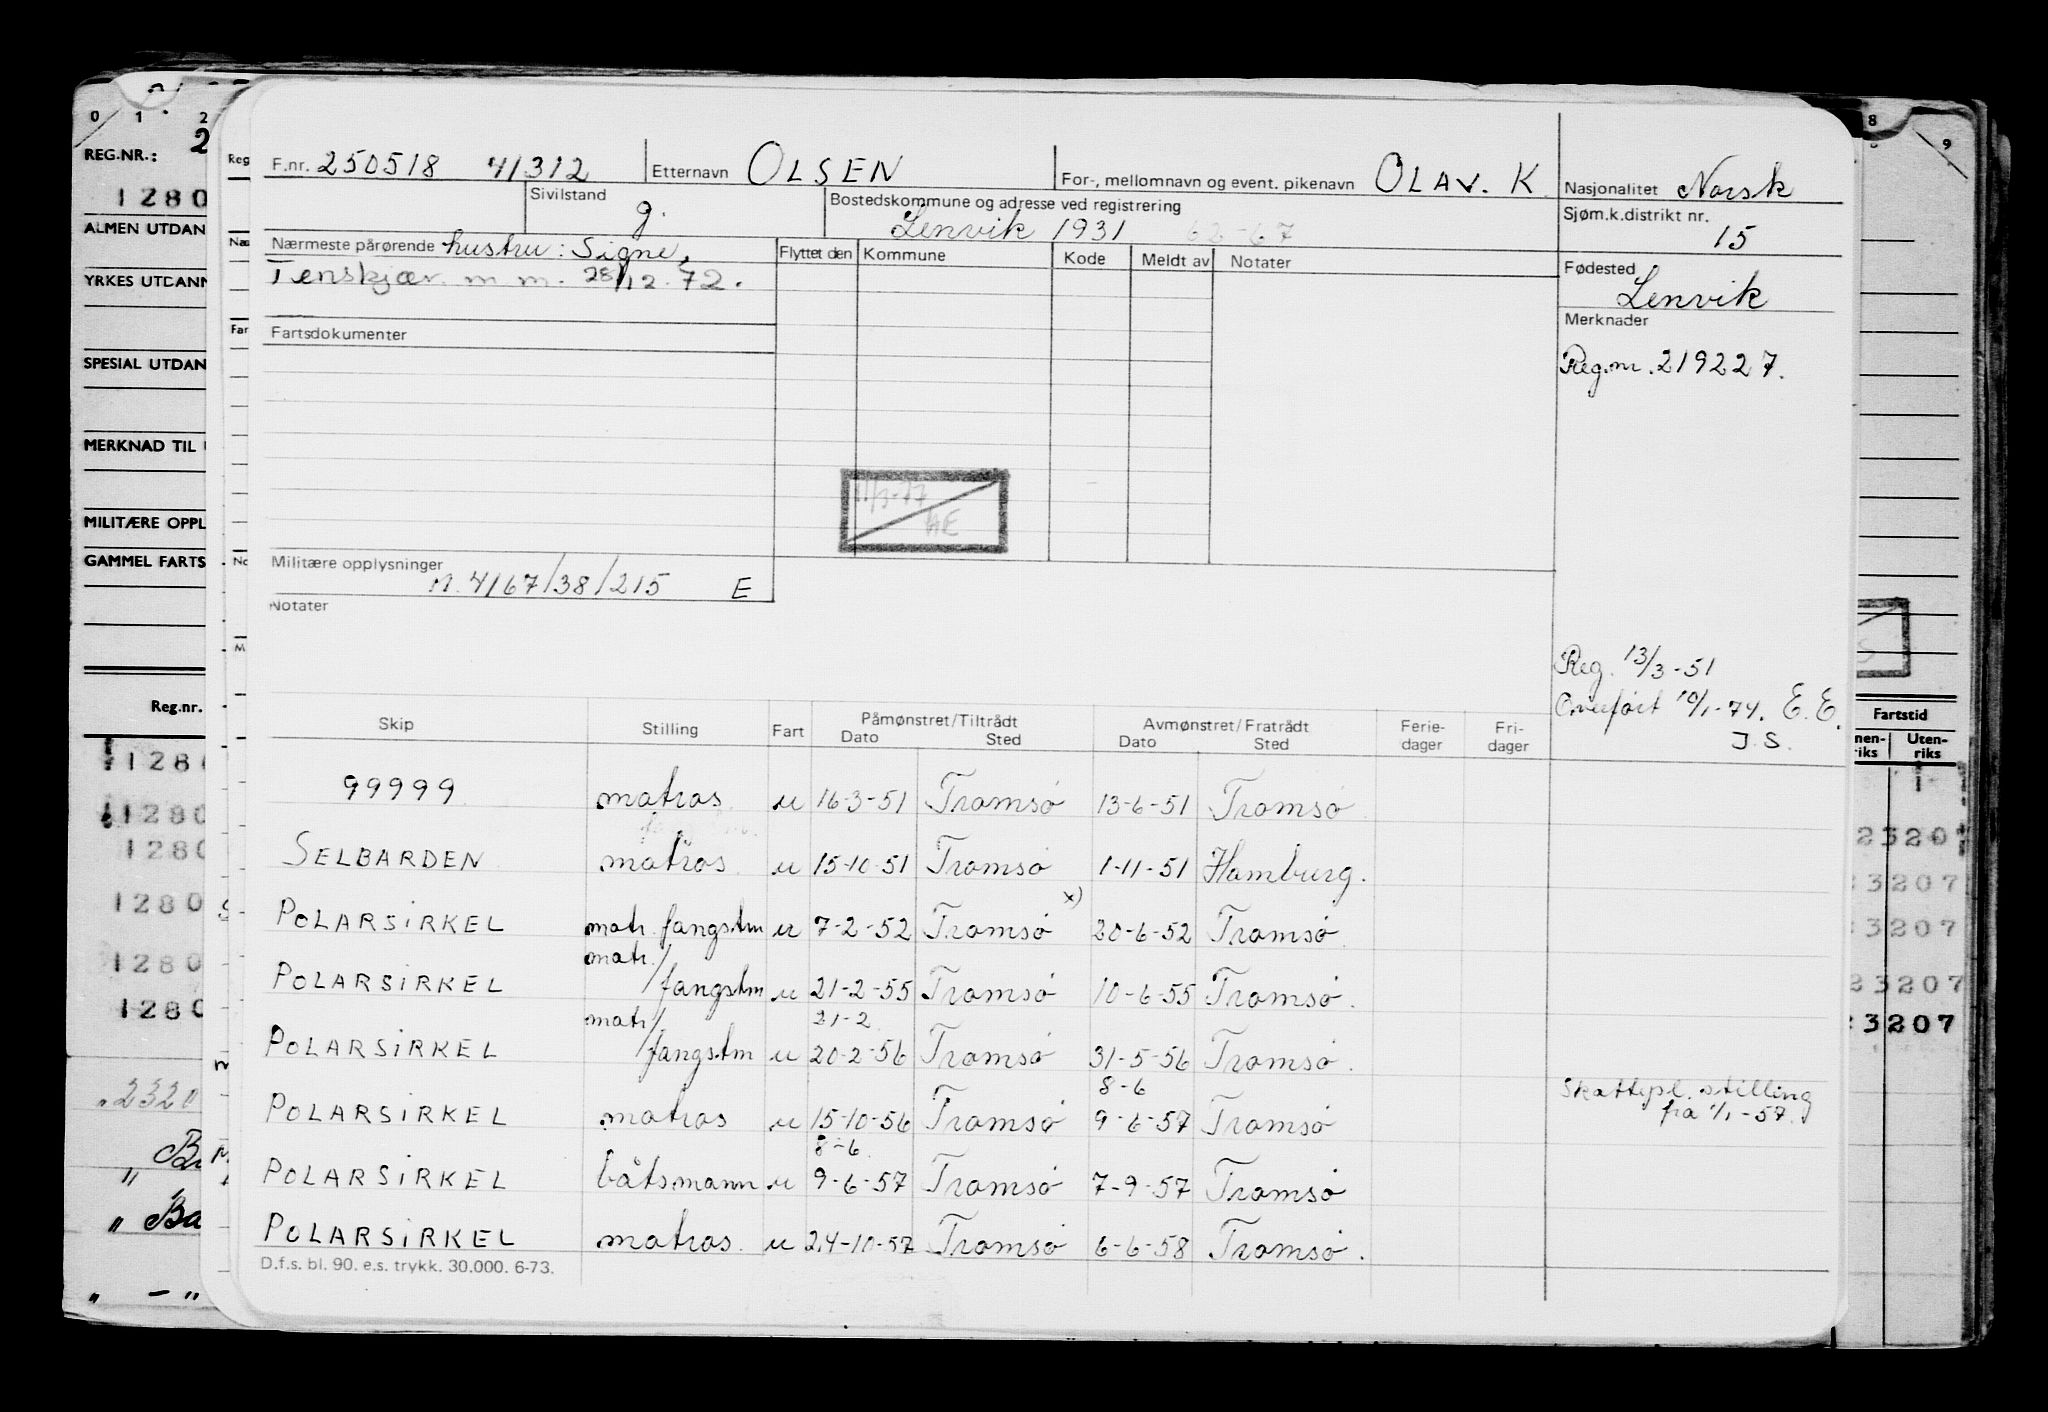 0 1 2
REG.NR.: 2
1280
ALMEN UTDAN
YRKES UTDANN
SPESIAL UTDAN
MERKNAD TIL
MILITÆRE OPPL
GAMMEL FARTS
Reg.nr.
1280
1280
1280
1280
1280
1280
2320
8 9
Fartstid
Uten-
riks
23207
23207
3207
23207
3207
F.nr. 250518 41312 Etternavn OLSEN For-, mellomnavn og event. pikenavn OLAV. K Nasjonalitet Norsk
Sivilstand g. Bostedskommune og adresse ved registrering Sjøm.k.distrikt nr.
Lenvik 1931 62-67 15
Nærmeste pårørende hustru: Signe, Flyttet den Kommune Kode Meldt av Notater Fødested
Tenskjær. m m. 28/12.72. Lenvik
Fartsdokumenter Merknader
Reg.nr. 219227.
11/3-77
AE
Militære opplysninger
n. 4/67/38/215 E
Notater
Reg. 13/3-51
Overført 10/1-74. E.E.
J.S.
Skip Stilling Fart Påmønstret/Tiltrådt Avmønstret/Fratrådt Ferie- Fri-
Dato Sted Dato Sted dager dager
99999 matros u 16-3-51 Tromsø 13-6-51 Tromsø
SELBARDEN matros u 15-10-51 Tromsø 1-11-51 Hamburg.
x)
POLARSIRKEL matr. fangstm u 7-2-52 Tromsø 20-6-52 Tromsø
matr./
POLARSIRKEL fangstm u 21-2-55 Tromsø 10-6-55 Tromsø.
matr/ 21-2
POLARSIRKEL fangstm u 20-2-56 Tromsø 31-5-56 Tromsø.
8-6 Skattepl. stilling
POLARSIRKEL matros u 15-10-56 Tromsø 9-6-57 Tromsø fra 1/1-57.
8-6.
POLARSIRKEL båtsmann u 9-6-57 Tromsø 7-9-57 Tromsø
POLARSIRKEL matros. u 24-10-57 Tromsø 6-6-58 Tromsø.
D.f.s. bl. 90. e.s. trykk. 30.000. 6-73.